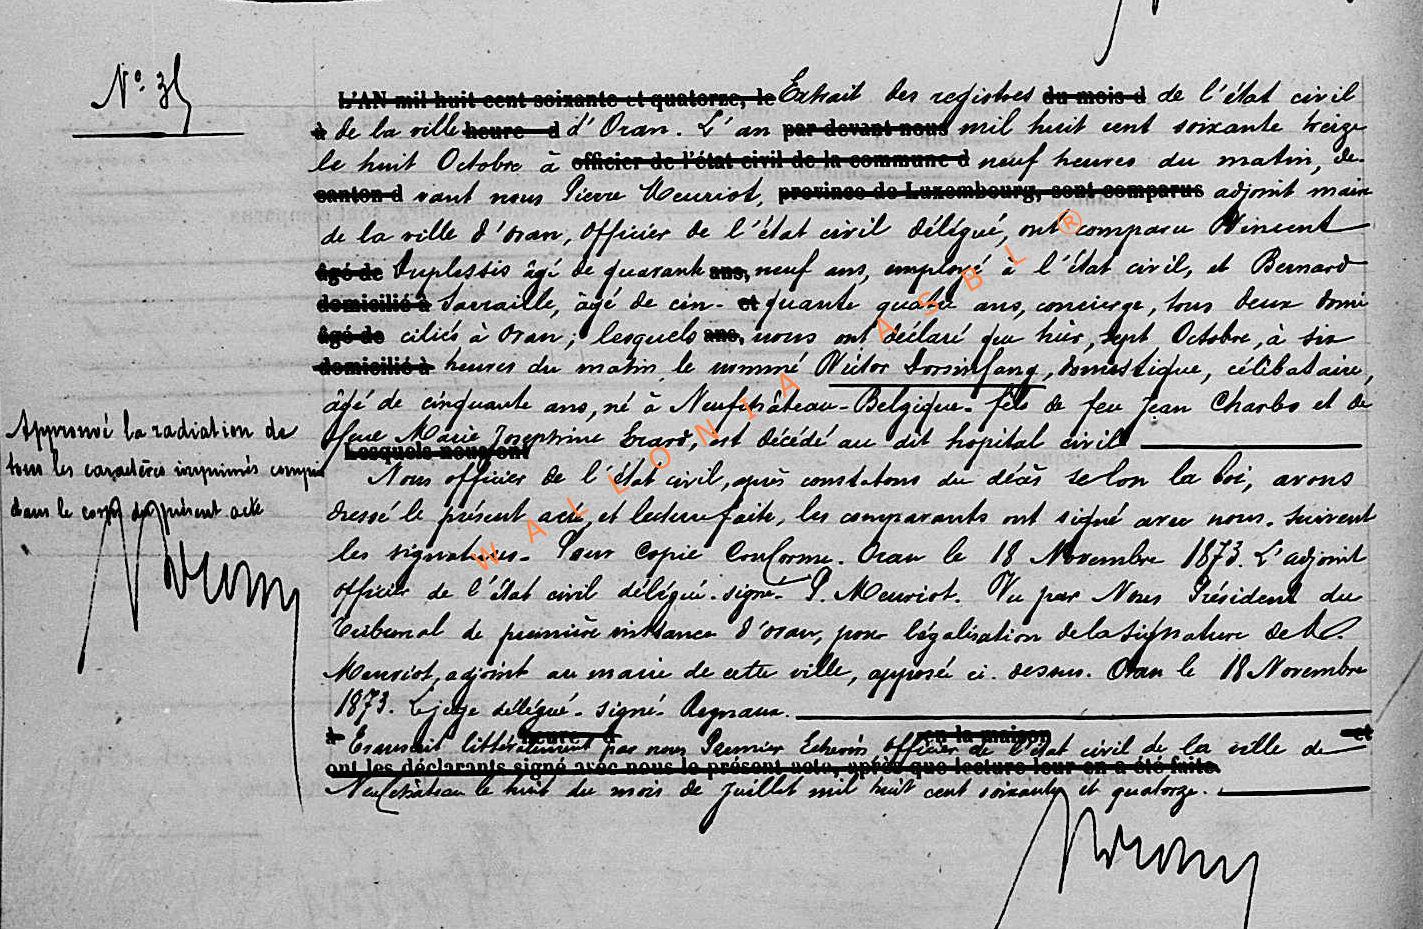 N° 35
L'AN mil huit cent soixante et quatorze, le Extrait des registres du mois d de l'état civil
à de la ville heure d d'Oran. L'an par devant nous mil huit cent soixante treize
le huit Octobre à officier de l'état civil de la commune d neuf heures du matin, de-
canton d vant nous Pierre Meuriot, province de Luxembourg, sont comparus adjoint maire
de la ville d'Oran, Officier de l'état civil délégué, ont comparu Vincent
âgé de Duplessis âgé de quarante ans, neuf ans, employé à l'état civil, et Bernard
domicilié à Sarraille, âgé de cin- et quante quatre ans, concierge, tous deux domi
âgé de ciliés à Oran, lesquels ans, nous ont déclaré que hier, sept Octobre, à six
domicilié à heures du matin le nommé Victor Dorsinfang, domestique, célibataire,
âgé de cinquante ans, né à Neufchâteau-Belgique- fils de feu Jean Charles et de
feue Marie Joséphine Erard, est décédé au dit hopital civil
Lesquels nous ont
Nous officier de l'état civil, après constatons du décès selon la loi, avons
dressé le présent acte, et lecture faite, les comparants ont signé avec nous. Suivent
les signatures. Pour Copie Conforme. Oran le 18 Novembre 1873. L'adjoint
officier de l'état civil délégué. signé- P. Meuriot. Vu par Nous Président du
Tribunal de première instance d'Oran, pour légalisation de la signature de M.
Meuriot, adjoint au maire de cette ville, apposée ci. dessus. Oran le 18 Novembre
1873. Le juge délégué- signé- Regnaux.
à heure d en la maison et
Transcrit littéralement par nous Premier Echevin, Officier de l'état civil de la ville de
ont les déclarants signé avec nous le présent acte, après que lecture leur en a été faite.
Neufchâteau le huit du mois de Juillet mil huit cent soixante et quatorze.
Approuvé la radiation de
tous les caractères imprimés compris
dans le corps du présent acte
WALLONIA ASBL ®